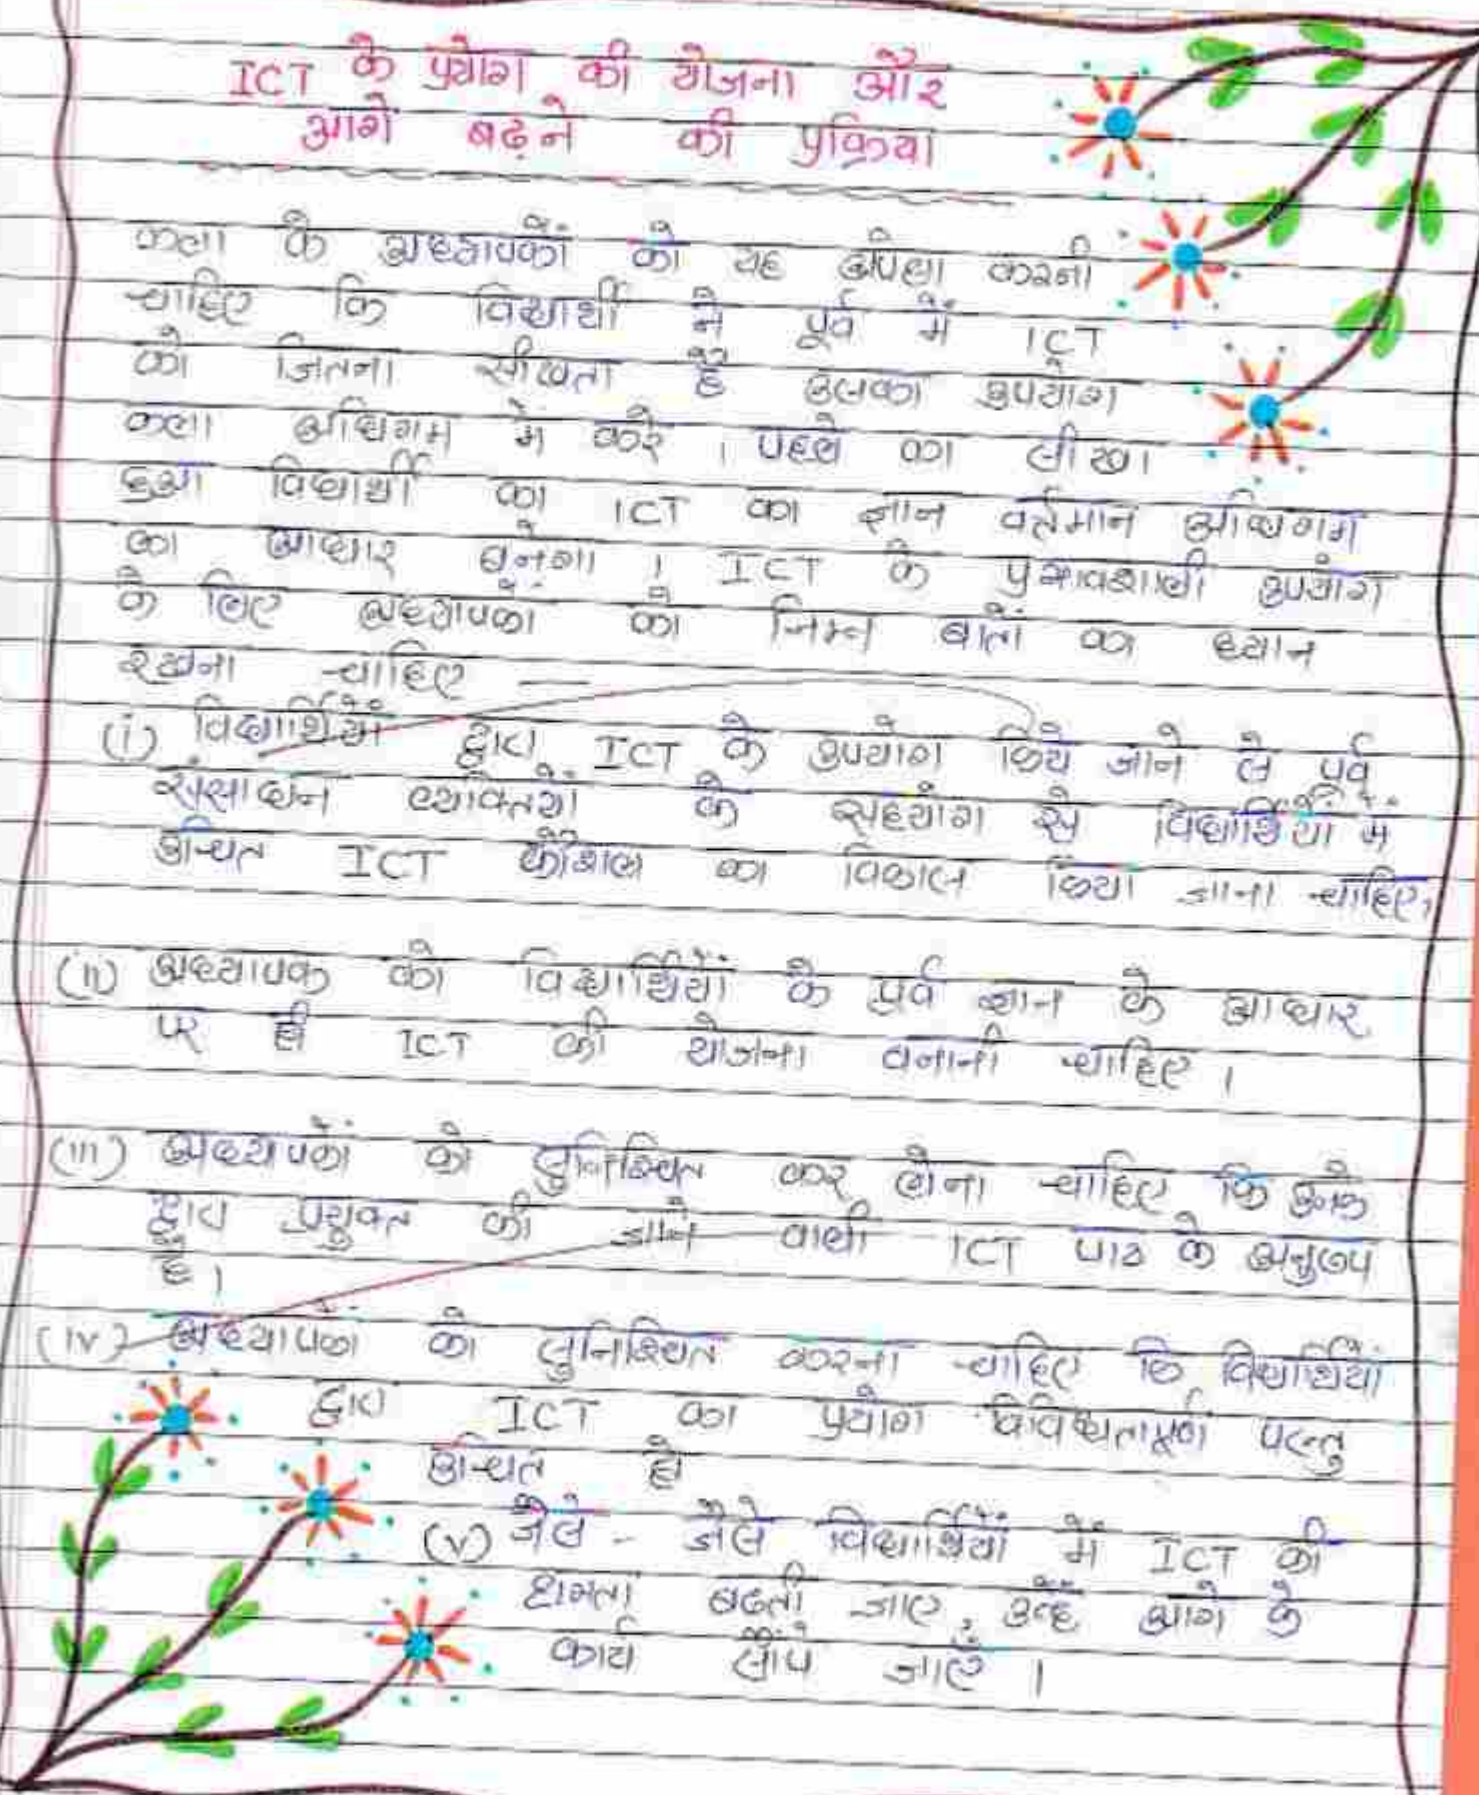 ICT के प्रयोग की योजना और
आगे बढ़ने की प्रक्रिया
कला के अध्यापकों को यह अपेक्षा करनी
चाहिए कि विद्यार्थी ने पूर्व में ICT
को जितना सीखता है उसका उपयोग
कला अधिगम में करे । पहले का सीखा
हुआ विद्यार्थी का ICT का ज्ञान वर्तमान अधिगम
का आधार बनेगा । ICT के प्रभावशाली उपयोग
के लिए अध्यापकों को निम्न बातों का ध्यान
रखना चाहिए —
(i) विद्यार्थियों द्वारा ICT के उपयोग किये जाने से पूर्व
संसाधन व्यक्तियों के सहयोग से विद्यार्थियों में
उचित ICT कौशल का विकास किया जाना चाहिए।
(ii) अध्यापक को विद्यार्थियों के पूर्व ज्ञान के आधार
पर ही ICT की योजना बनानी चाहिए ।
(iii) अध्यपकों को सुनिश्चित कर लेना चाहिए कि उनके
द्वारा प्रयुक्त की जाने वाली ICT पाठ के अनुरूप
है ।
(iv) अध्यापकों को सुनिश्चित करना चाहिए कि विद्यार्थियों
द्वारा ICT का प्रयोग विविधतापूर्ण परन्तु
उचित हो
(v) जैसे - जैसे विद्यार्थियों में ICT की
क्षमता बढती जाए, उन्हें आगे के
कार्य सौंपे जाएँ ।